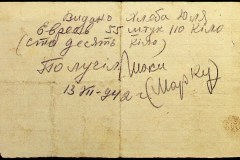 Видано хлѣба для
Евреѣв 55 штук 110 кіло
(сто десять кіло)
Получіл
13 VII-942 г (Марку)